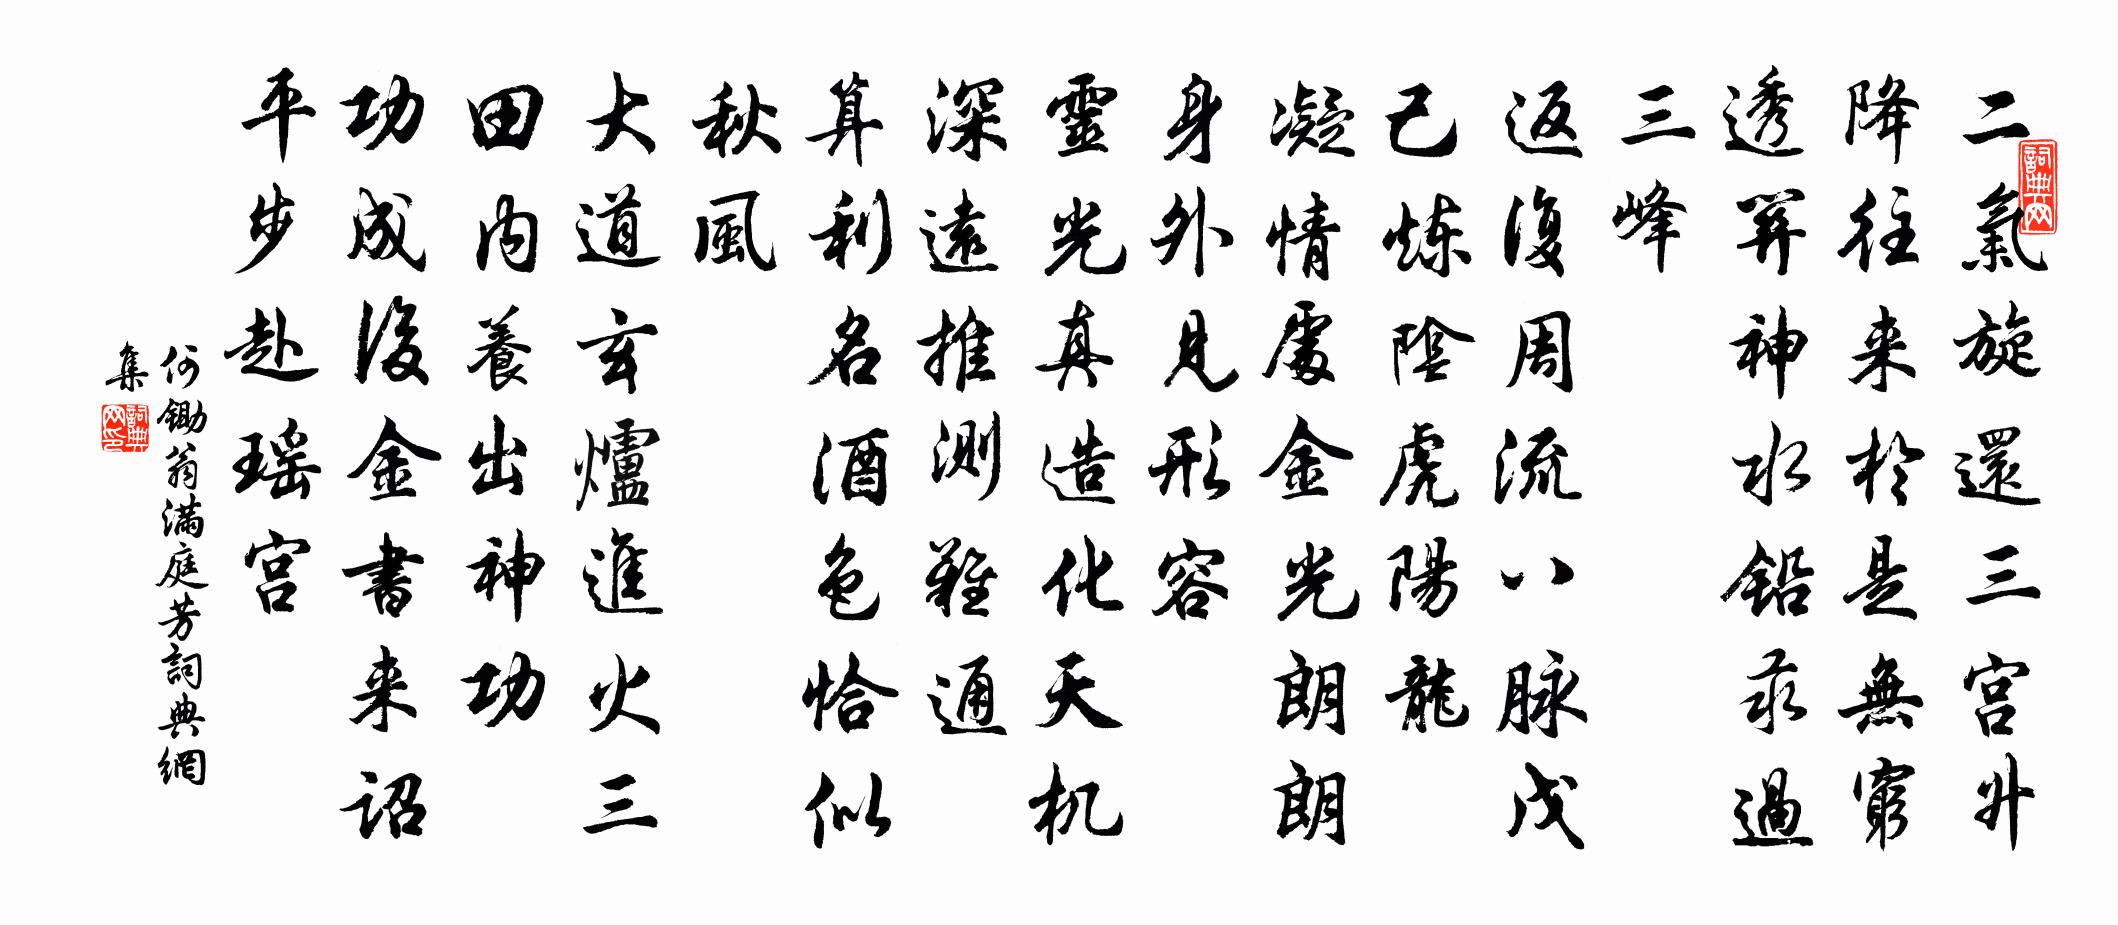 二氣旋還三宮升
降往来於是無窮
透關神水鉛汞過
三峰
返復周流八脉戊
己炼陰虎陽龍
凝情處金光朗朗
身外見形容
靈光真造化天机
深遠推測難通
算利名酒色恰似
秋風
大道玄爐進火三
田內養出神功
功成後金書来詔
平步赴瑶宮
何鋤翁滿庭芳詞典網
集
詞典网
詞典网印